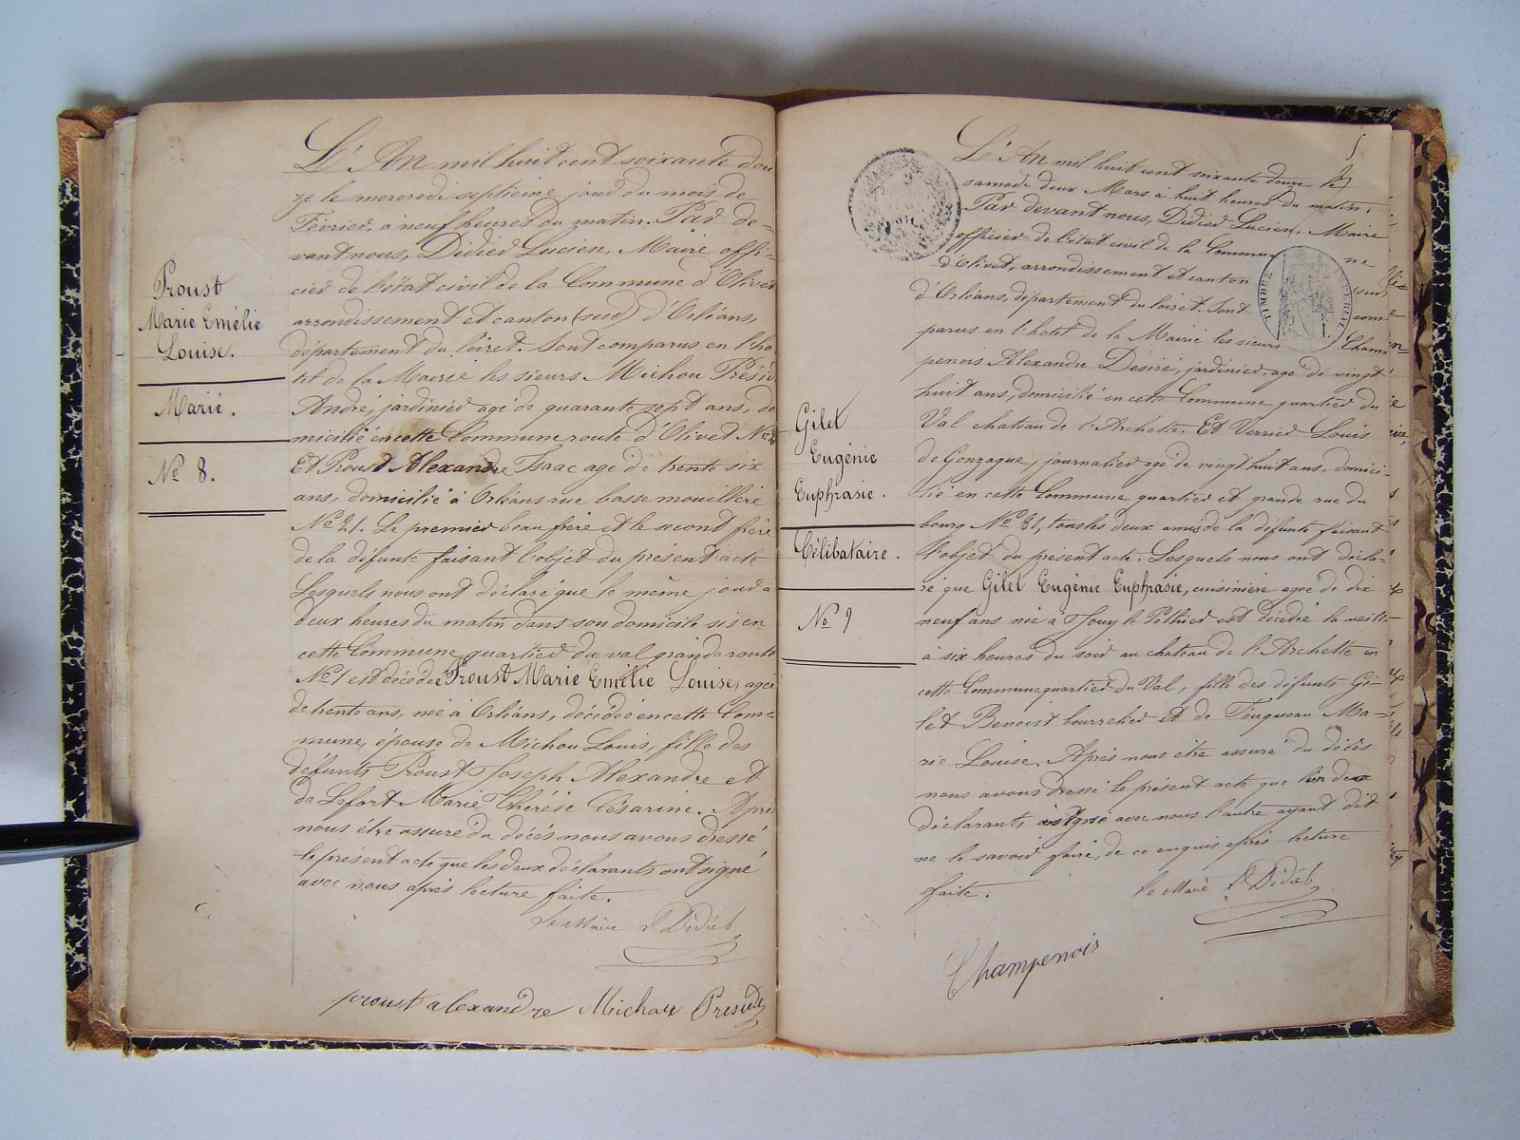 Proust
Marie Emélie
Louise.
Marié.
Nº 8.
L'An mil huit cent soixante dou
ze le mercredi septième jour du mois de
Février, à neuf heures du matin. Par de-
vant nous, Didier Lucien, Maire offi-
cier de l'état civil de la Commune d'Olivet
arrondissement et canton (sud) d'Orléans,
département du loiret. Sont comparus en l'ho
tel de la Mairie les sieurs Michou
André, jardinier agé de quarante sept ans, do
micilié en cette Commune route d'Olivet Nº
Et Proust Alexandre Isaac agé de trente six
ans, domicilié à Orléans rue basse mouillère
Nº 21. Le premier beau frère et le second frère
de la défunte faisant l'objet du présent acte
Lesquels nous ont déclaré que le même jour à
deux heures du matin dans son domicile sis en
cette Commune quartier du val grande route
Nº 1 est décédée Proust Marie Emélie Louise, agée
de trente ans, née à Orléans, décédée en cette Com-
mune, épouse de Michou Louis, fille des
défunts Proust Joseph Alexandre et
de Lefort Marie Thérèse Césarine. Après
nous être assuré du décès nous avons dressé
le présent acte que les deux déclarants ont signé
avec nous après lecture faite.
Le Maire L Didier
proust alexandre Michou
5
Gilet
Eugénie
Euphrasie.
Célibataire.
Nº 9
L'An mil huit cent soixante douze le
samedi deux Mars à huit heures du matin,
Par devant nous, Didier Lucien, Maire
officier de l'état civil de la Commune
d'Olivet, arrondissement et canton
d'Orléans, département du loiret. Sont com
parus en l'hotel de la Mairie les sieurs Cham
penois Alexandre Désiré, jardinier, agé de vingt
huit ans, domicilié en cette Commune quartier du
Val chateau de l'Archette. Et Verrier Louis
de Gonzague, journalier agé de vingt huit ans domici-
lié en cette Commune quartier et grande rue du
bourg Nº 61, tous les deux amis de la défunte faisant
l'objet du présent acte. Lesquels nous ont décla-
ré que Gilet Eugénie Euphrasie, cuisinière agée de dix
neuf ans née à Jouy le Pothier est décédée la veille
à six heures du soir au chateau de l'Archette en
cette Commune quartier du Val, fille des défunts Gi-
let Benoist bourrelier et de Ma-
rie Louise. Après nous être assuré du décès
nous avons dressé le présent acte que l'un des
déclarants a signé avec nous l'autre ayant dit
ne le savoir faire, de ce enquis après lecture
faite.
le Maire L Didier
Champenois